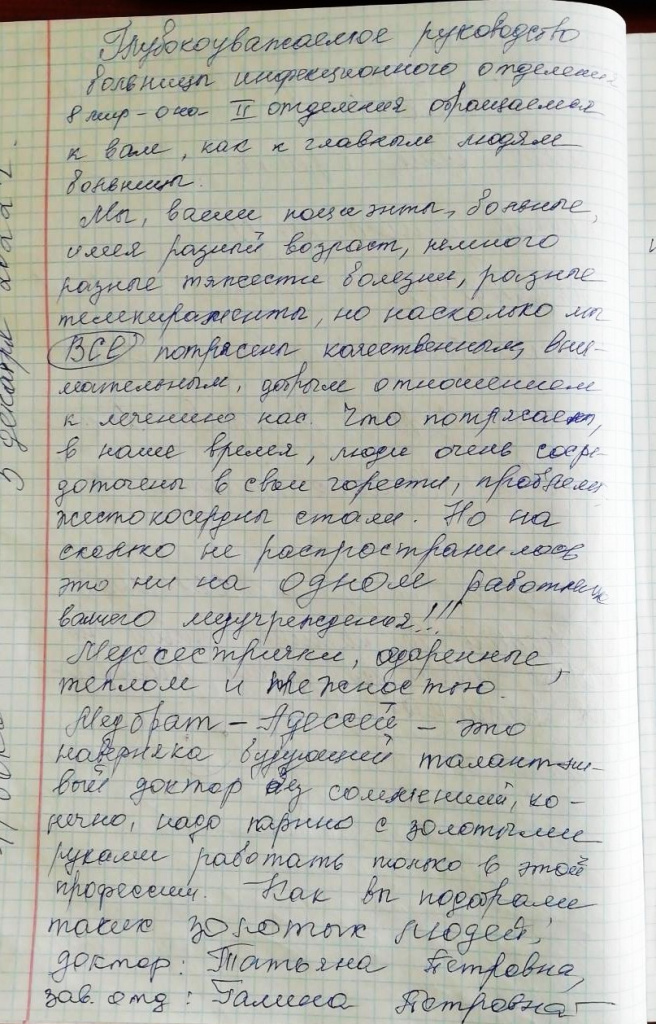 Глубокоуважаемое руководство
больницы инфекционного отделения
II отделения обращаемся
к вам, как к главным людям
больницы.
Мы, ваши пациэнты, больные,
имея разный возраст, немного
разные тяжести болезни, разные
темпираменты, но насколько мы
ВСЕ потрясены качественным, вни-
мательным, добрым отношением
к лечению нас. Что потрясает,
в наше время, люди очень соср-
доточены в свои горести, проблемы
жестокосердны стали. Но на
сколько не распространилось
это ни на одном работнике
вашего медучреждения!!!
Медсестрички, одаренные,
теплом и нежностью.
Медбрат - - это
наверняка будующий талантли-
вый доктор без сомнений, ко-
нечно, надо парню с золотыми
руками работать только в этой
профессии. Как вы подобрали
таких золотых людей!
доктор: Татьяна Петровна,
зав. отд: Галина Петровна -
5 декабря